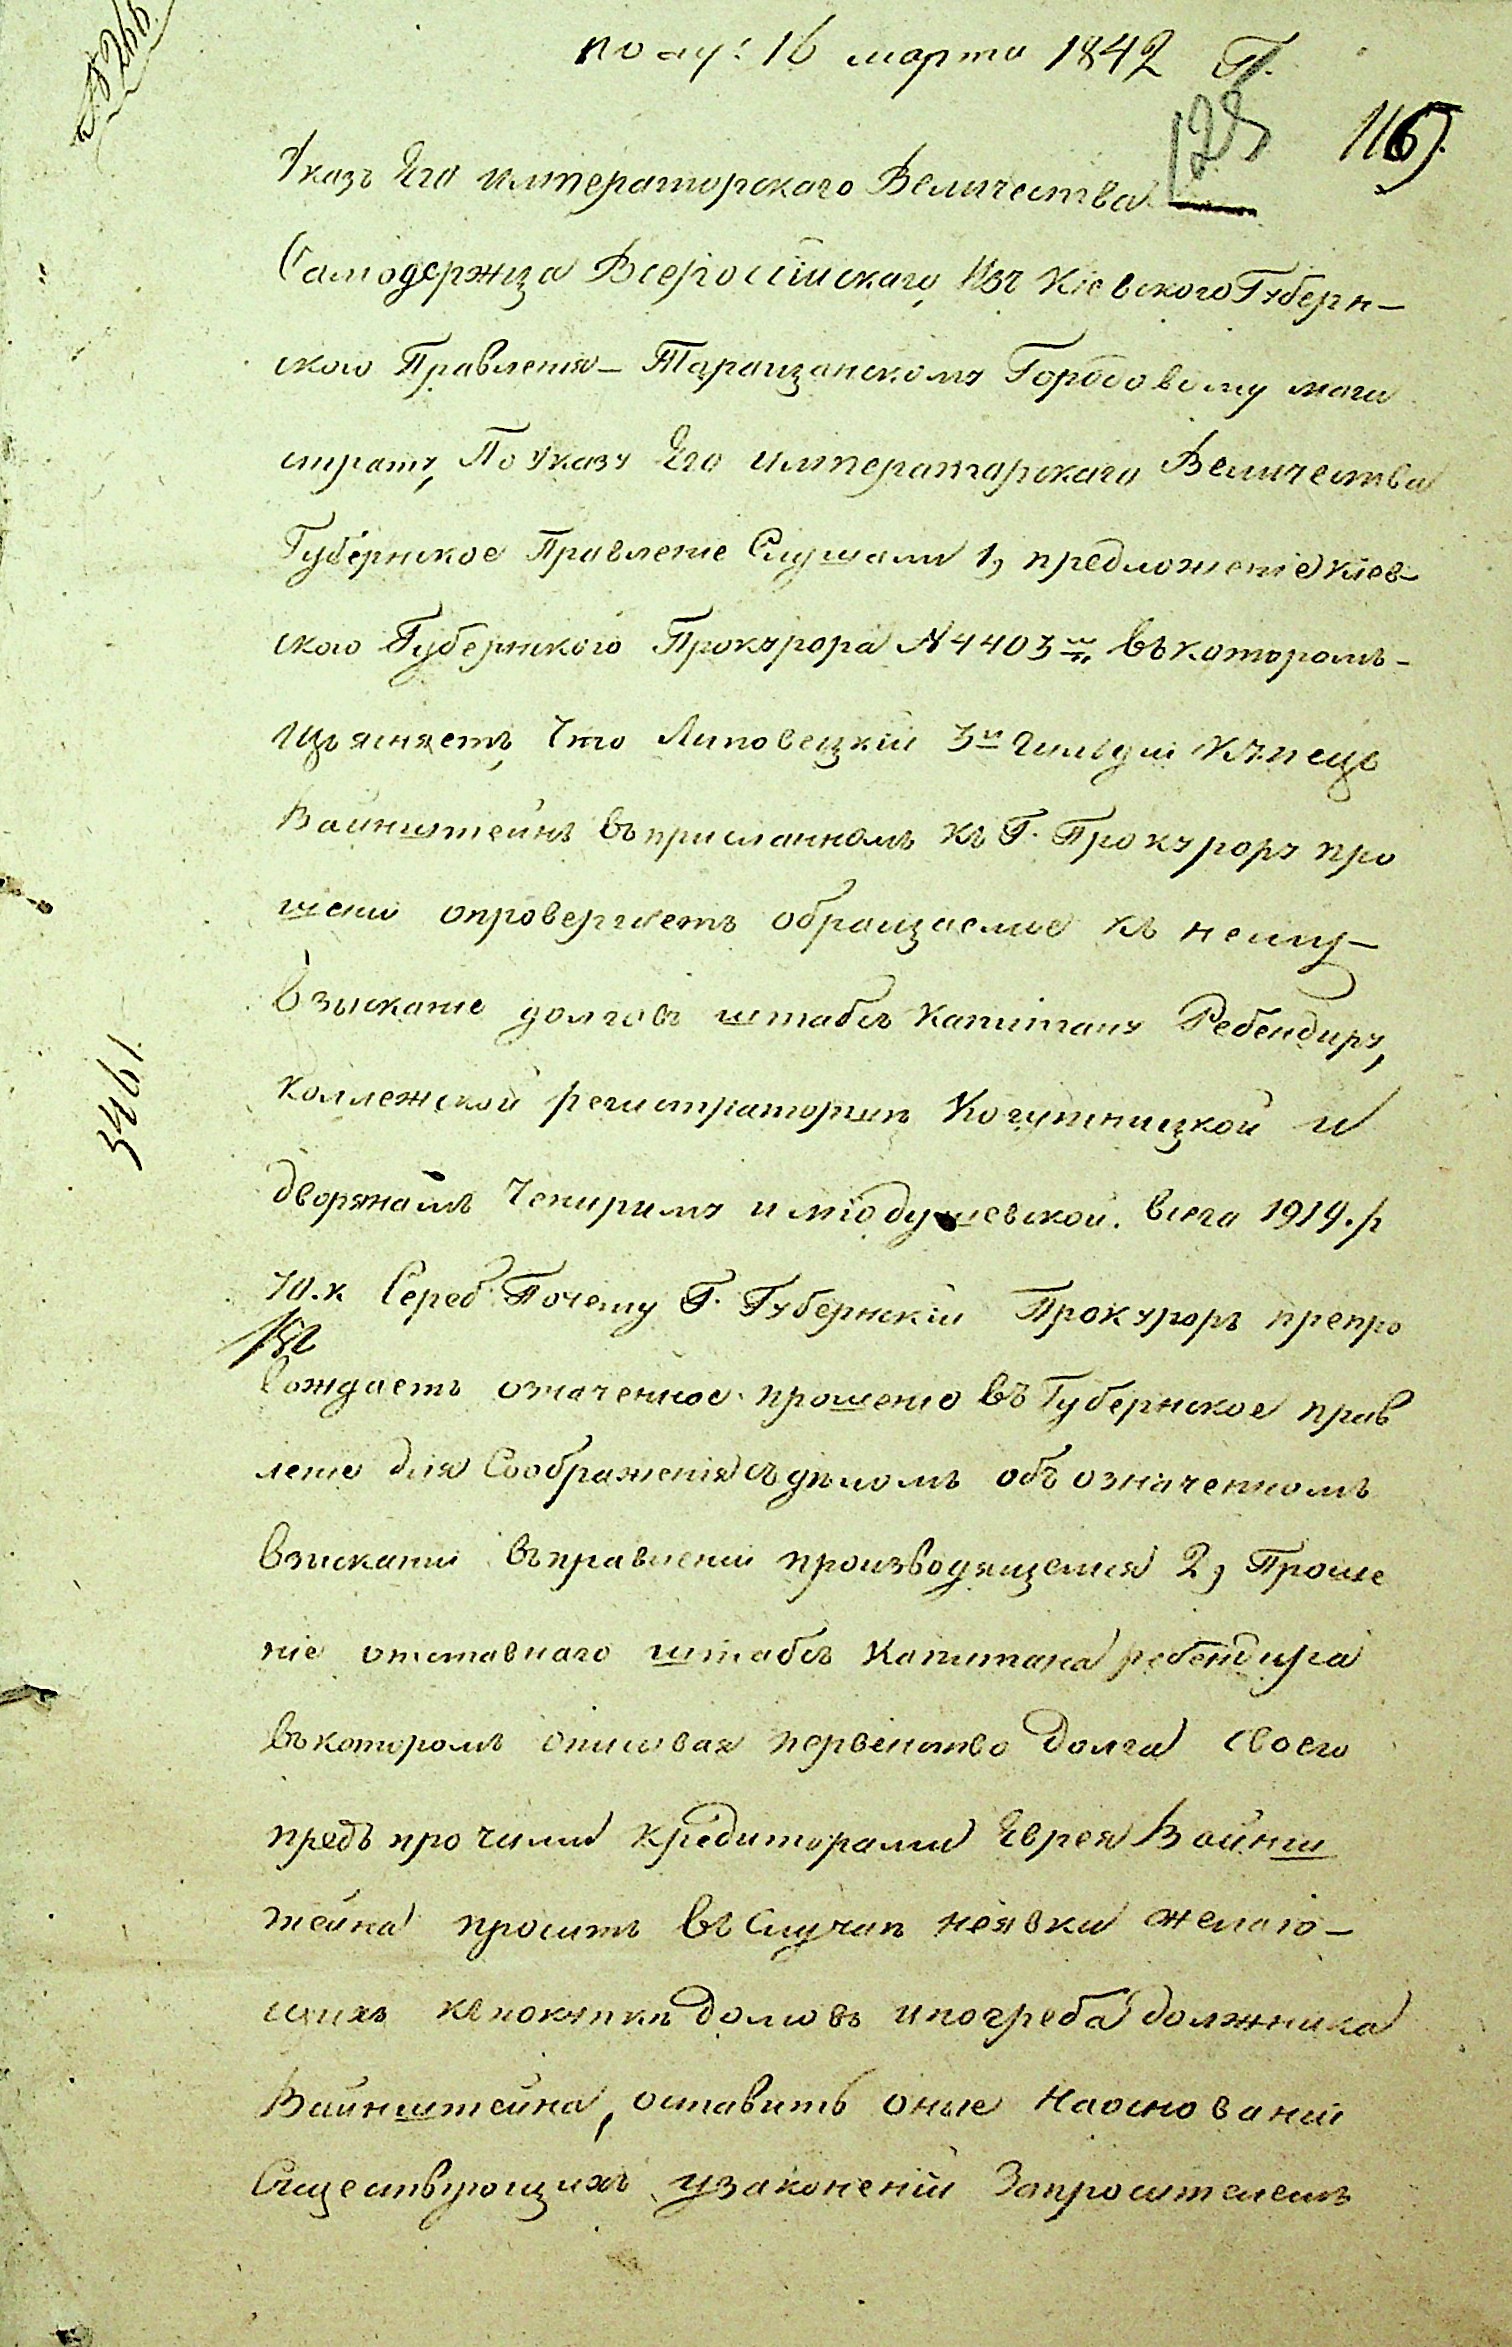 полу: 16 марта 1842 Г.
128 116
Указъ Его императорскаго Величества
Самодержца Всеросійскаго, Изъ Кіевского Губерн-
ского Правленія - Таращанскому Городовому маги
страту, По Указу Его императорскаго Величества
Губернское Правленіе Слушали 1, предложеніе кіев-
ского Губернского Прокурора №4403 въ которомъ-
изъясняетъ, что Липовецкій 3й гильдіи купецъ
Вайнштейнъ въ присланномъ къ Г. Прокурору про
шеніи опровергаетъ обращаемые къ нему-
взысканіе долговъ штабсъ капитану Ребендиру,
коллежской регистраторшѣ Когутницкой и
дворянамъ Чекириму и мюдушевской. всего 1914. р
70. к Сереб. Почему Г. Губернскій Прокуроръ препро
вождаетъ означенное прошеніе въ Губернское прав
леніе для Соображенія съ дѣломъ объ означенномъ
взысканіи въ правленіи производящемся 2, Проше
ніе отставнаго штабсъ капитана ребендира
въ которомъ описывая первенство долга своего
предъ прочими кредиторами Еврея Вайнш
тейна проситъ въ Случаѣ неявки желаю-
щихъ къ покупкѣ домовъ и погреба должника
Вайнштейна, оставить оные на основаніи
Существующихъ узаконеній За просителемъ
3461